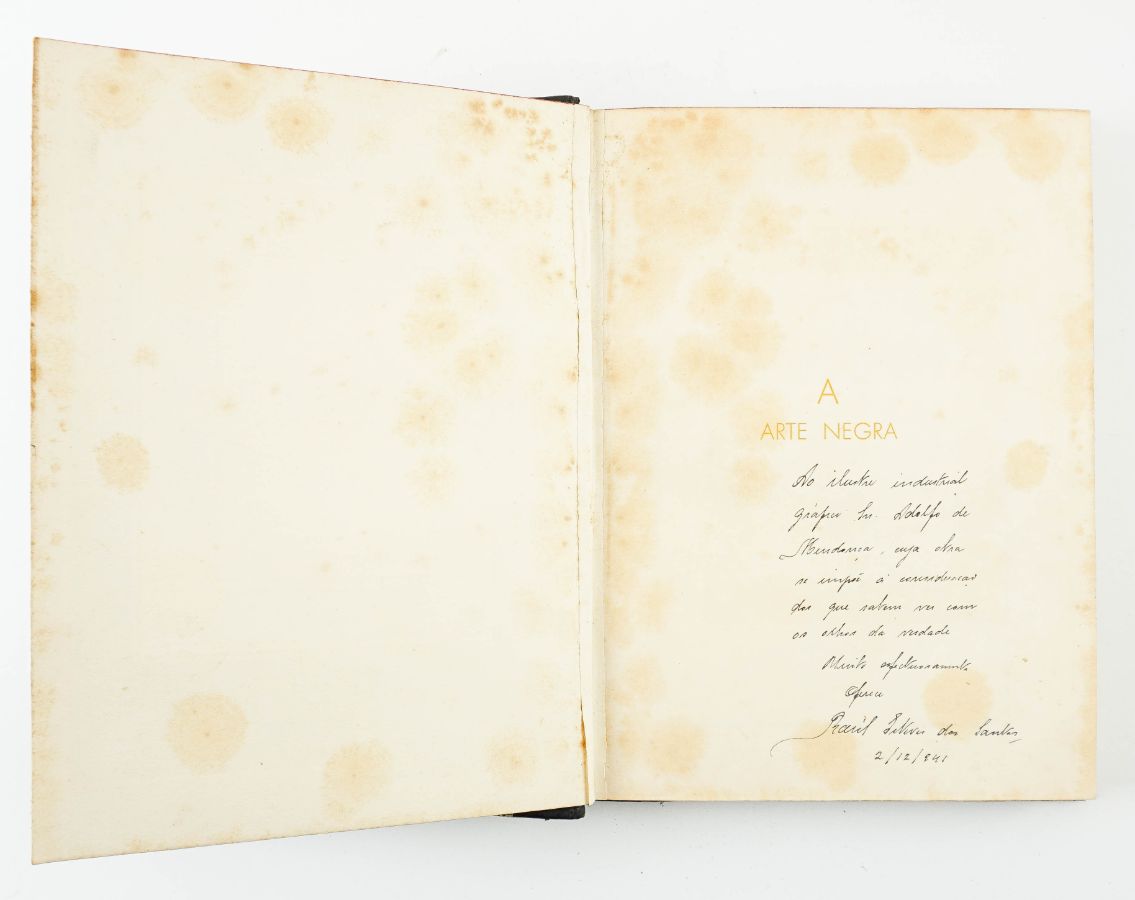 A
ARTE NEGRA
Ao ilustre industrial
gráfico Sr. Adolfo de
Mendonça, cuja obra
se impõe à consideração
dos que sabem ver com
os olhos da verdade
Muito afectuosamente
Oferece
Raúl Esteves dos Santos
2/12/941